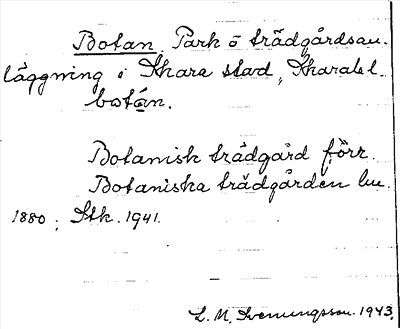 Botan. Park o trädgårdsan-
läggning i Skara stad, Skara l.l.
botán.
Botanisk trädgård förr.
Botaniska trädgården bu.
1880; Stk. 1941.
L. M. Svenungsson. 1943.